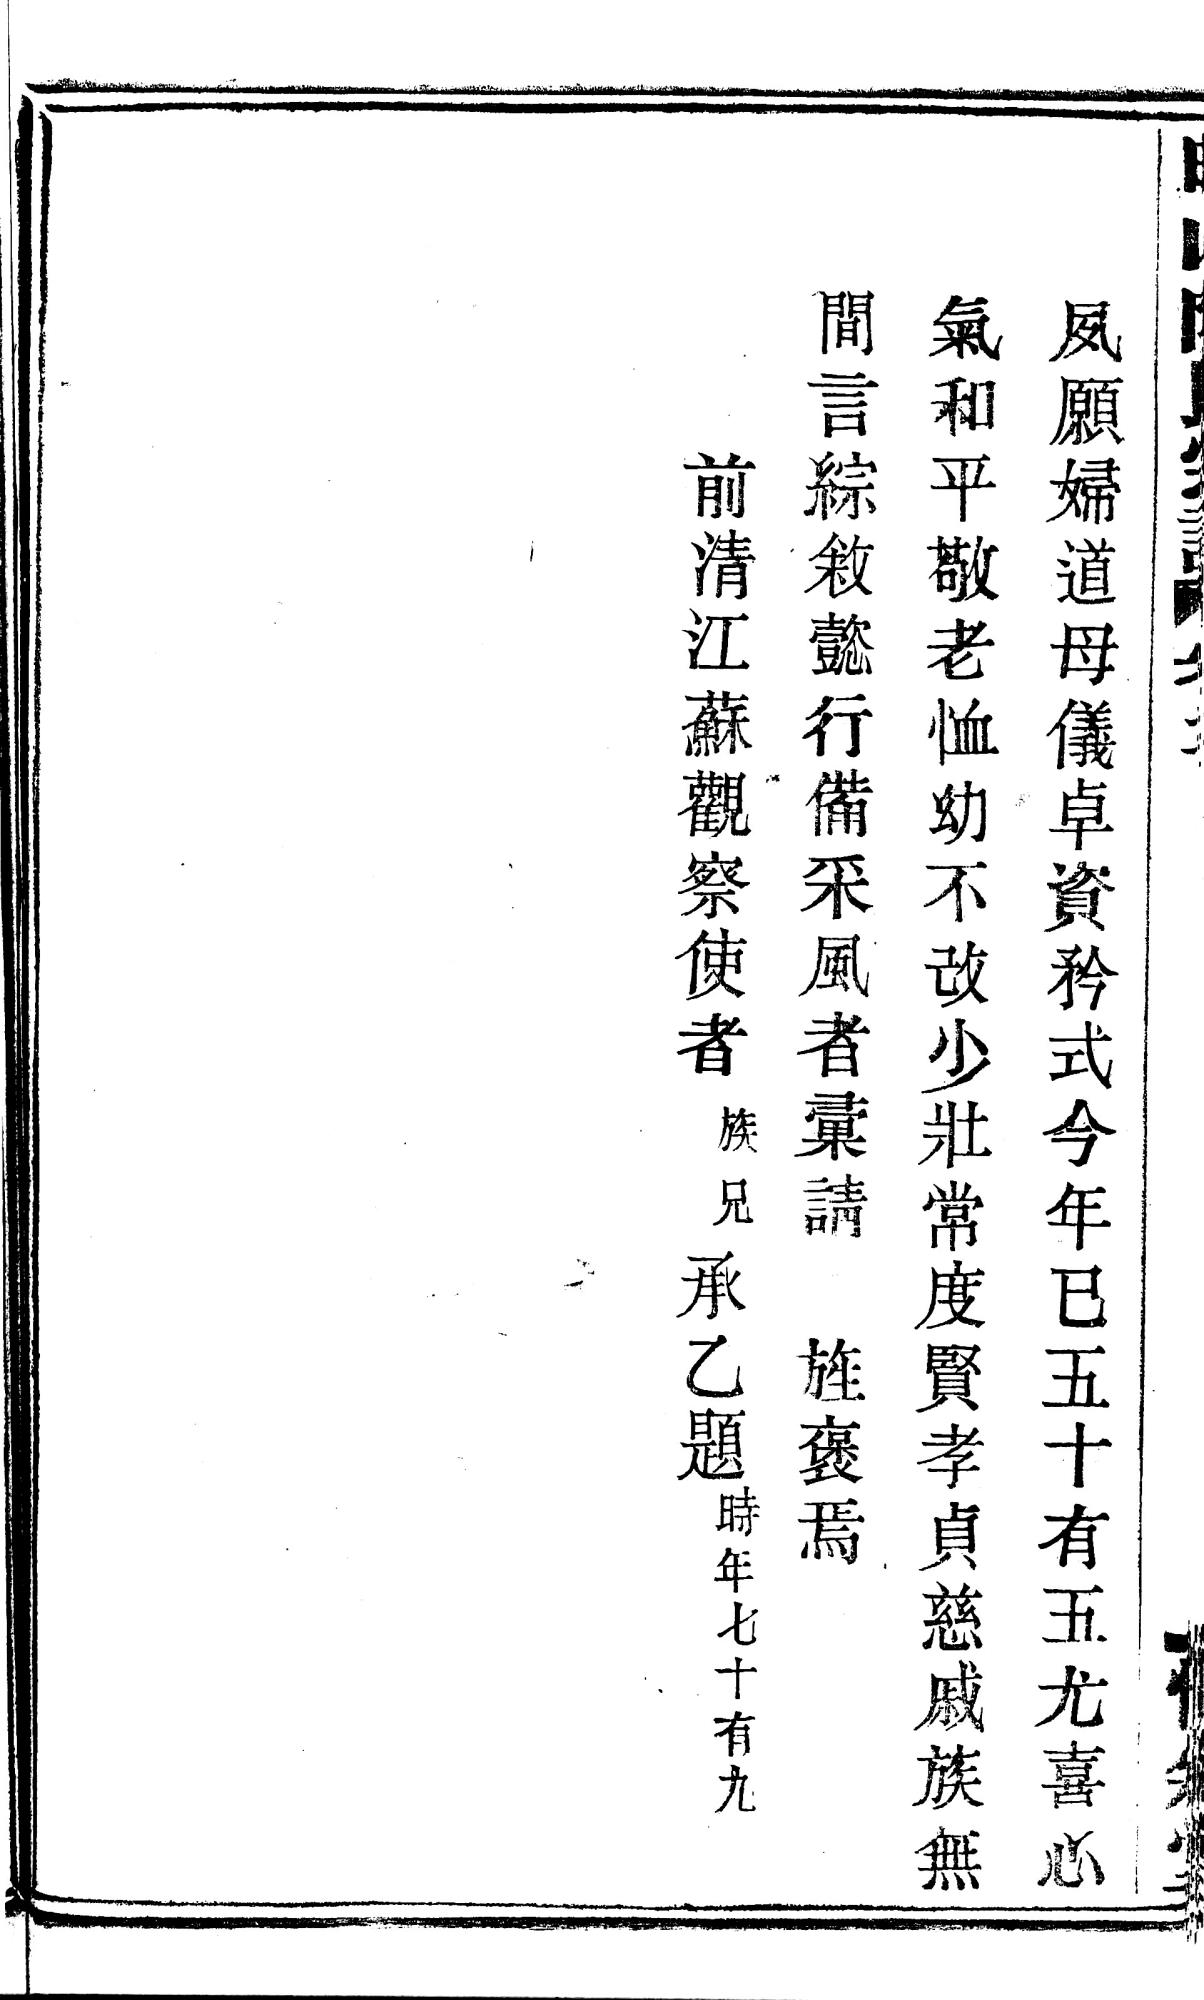 夙願婦道母儀卓資矜式今年已五十有五尤喜心
氣和平敬老恤幼不改少壯常度賢孝貞慈戚族無
間言綜敘懿行備采風者彙請　旌褒焉
前清江蘇觀察使者族兄承乙題時年七十有九